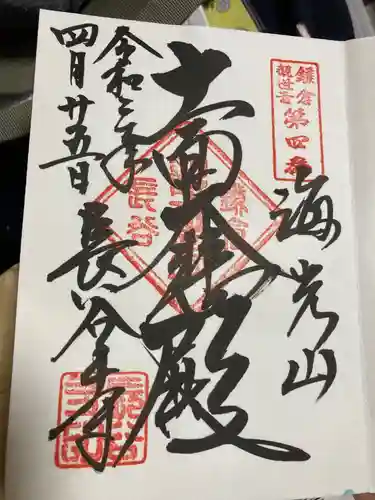 鎌倉
観世音
第四番
海光山
十一面大悲殿
鎌倉
長谷
長谷寺
令和三年
四月廿五日